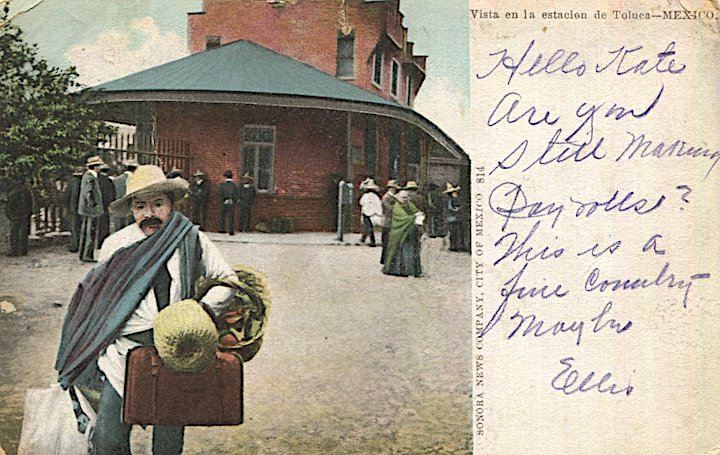 Vista en la estacion de Toluca—MEXICO.
Hello Kate
Are you
Still Making
Payrolls?
This is a
fine Country
Maybe
Ellis
SONORA NEWS COMPANY, CITY OF MEXICO 814